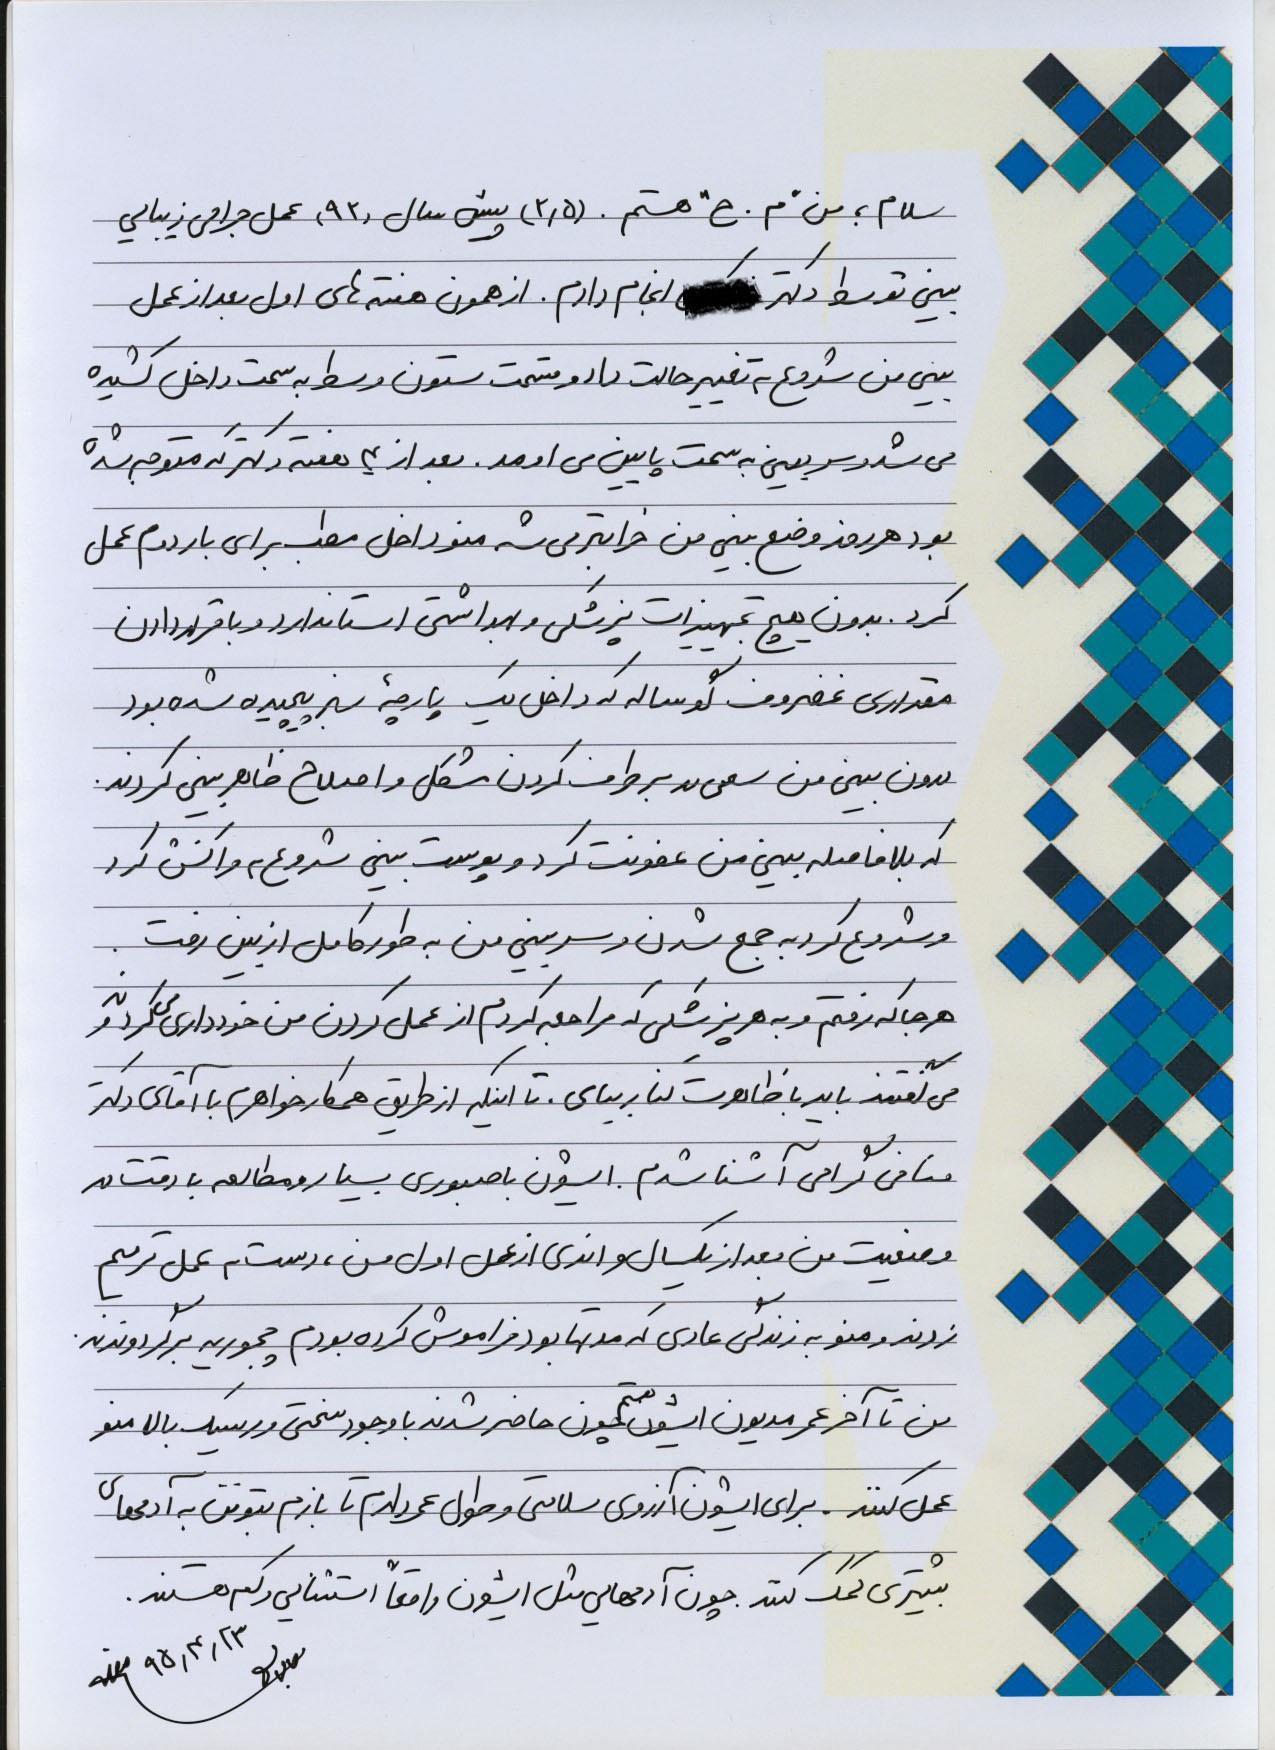 سلام، من "م . ح" هستم . (۲٫۵) پیش سال ۹۲، عمل جراحی زیبایی
بینی توسط دکتر انجام دادم . از همون هفته های اول بعد از عمل
بینی من شروع به تغییر حالت داد و قسمت ستون وسط به سمت داخل کشیده
می شد و سر بینی به سمت پایین می اومد . بعد از ۴ هفته دکتر که متوجه شده
بود هر روز وضع بینی من خرابتر می شه منو داخل مطب برای بار دوم عمل
کرد . بدون هیچ تجهیزات پزشکی و بهداشتی استاندارد و با قرار دادن
مقداری غضروف گوساله که داخل یک پارچهٔ سبز پیچیده شده بود
درون بینی من سعی به برطرف کردن مشکل و اصلاح ظاهر بینی کردند .
که بلافاصله بینی من عفونت کرد و پوست بینی شروع به واکنش کرد
و شروع کرد به جمع شدن و سر بینی من به طور کامل از بین رفت .
هرجا که رفتم و به هر پزشکی که مراجعه کردم از عمل کردن من خودداری می کردند و
می گفتند باید با ظاهرت کنار بیای . تا اینکه از طریق همکار خواهرم با آقای دکتر
منافی گرامی آشنا شدم . ایشون با صبوری بسیار و مطالعه با دقت به
وضعیت من بعد از یکسال و اندی از عمل اول من ، دست به عمل ترمیم
زدند و منو به زندگی عادی که مدتها بود فراموش کرده بودم چجوریه برگردوندند .
من تا آخر عمر مدیون ایشون هستم چون حاضر شدند با وجود سختی و ریسک بالا منو
عمل کنند . برای ایشون آرزوی سلامتی و طول عمر دارم تا بازم بتونن به آدمهای
بیشتری کمک کنند . چون آدمهایی مثل ایشون واقعاً استثنایی و کم هستند .
۹۵٫۴٫۲۳